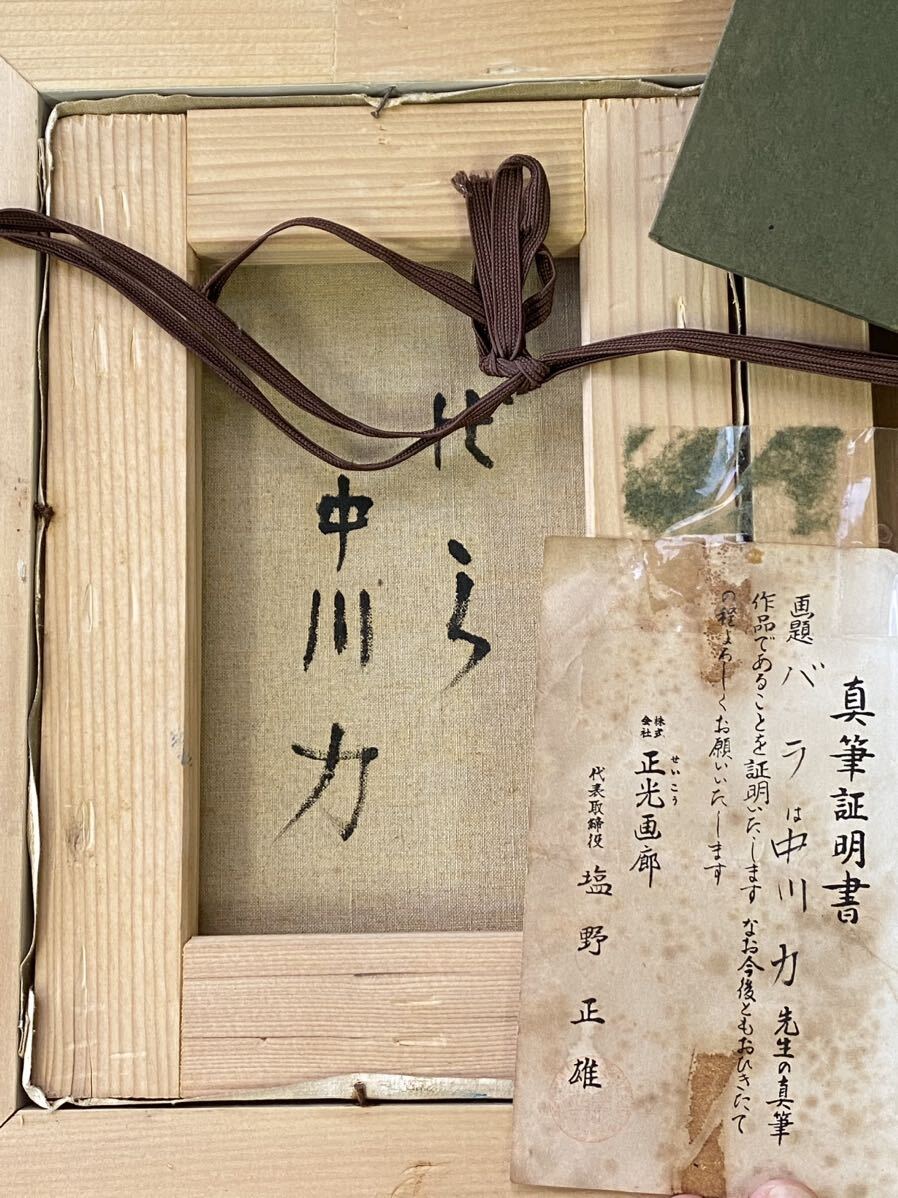 ばら
中川力
真筆証明書
画題 バラは中川 力 先生の真筆
作品であることを証明いたします なお今後ともおひきたて
の程よろしくお願いいたします
株式会社 正光画廊
せいこう
代表取締役 塩野正雄